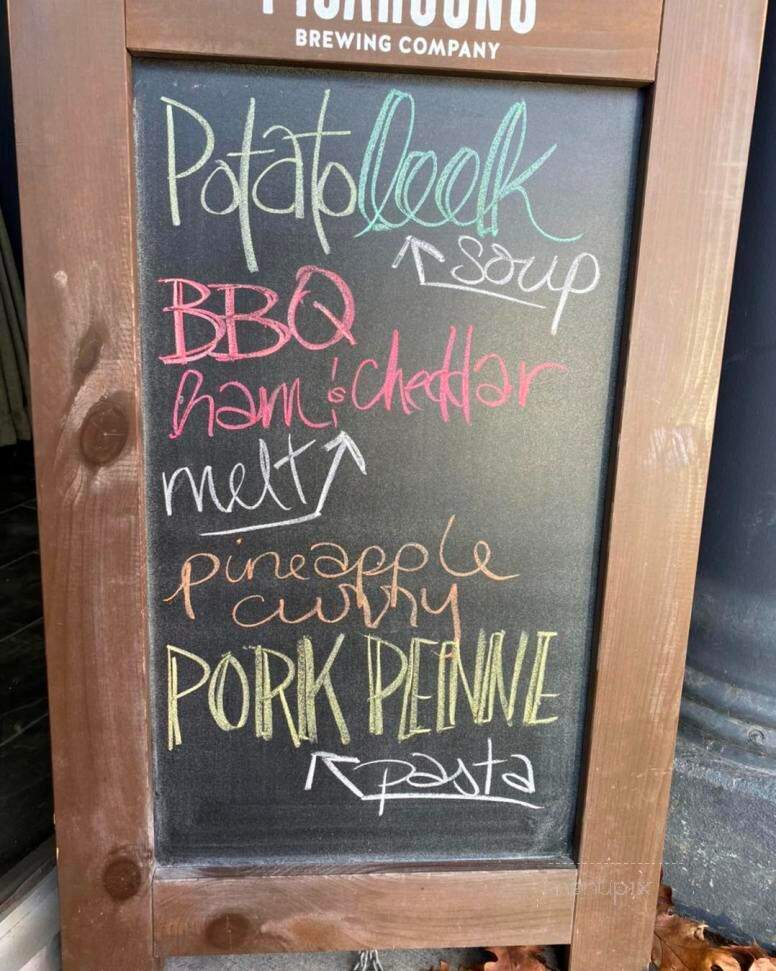 BREWING COMPANY
Potato leek
soup
BBQ
ham & cheddar
melt
pineapple
curry
PORK PENNE
pasta
menupix